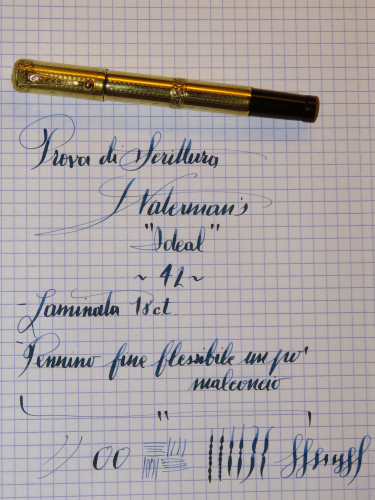 Prova di Scrittura
Waterman's
"Ideal"
~ 42 ~
Laminata 18ct.
Pennino fine flessibile un po'
malconcio